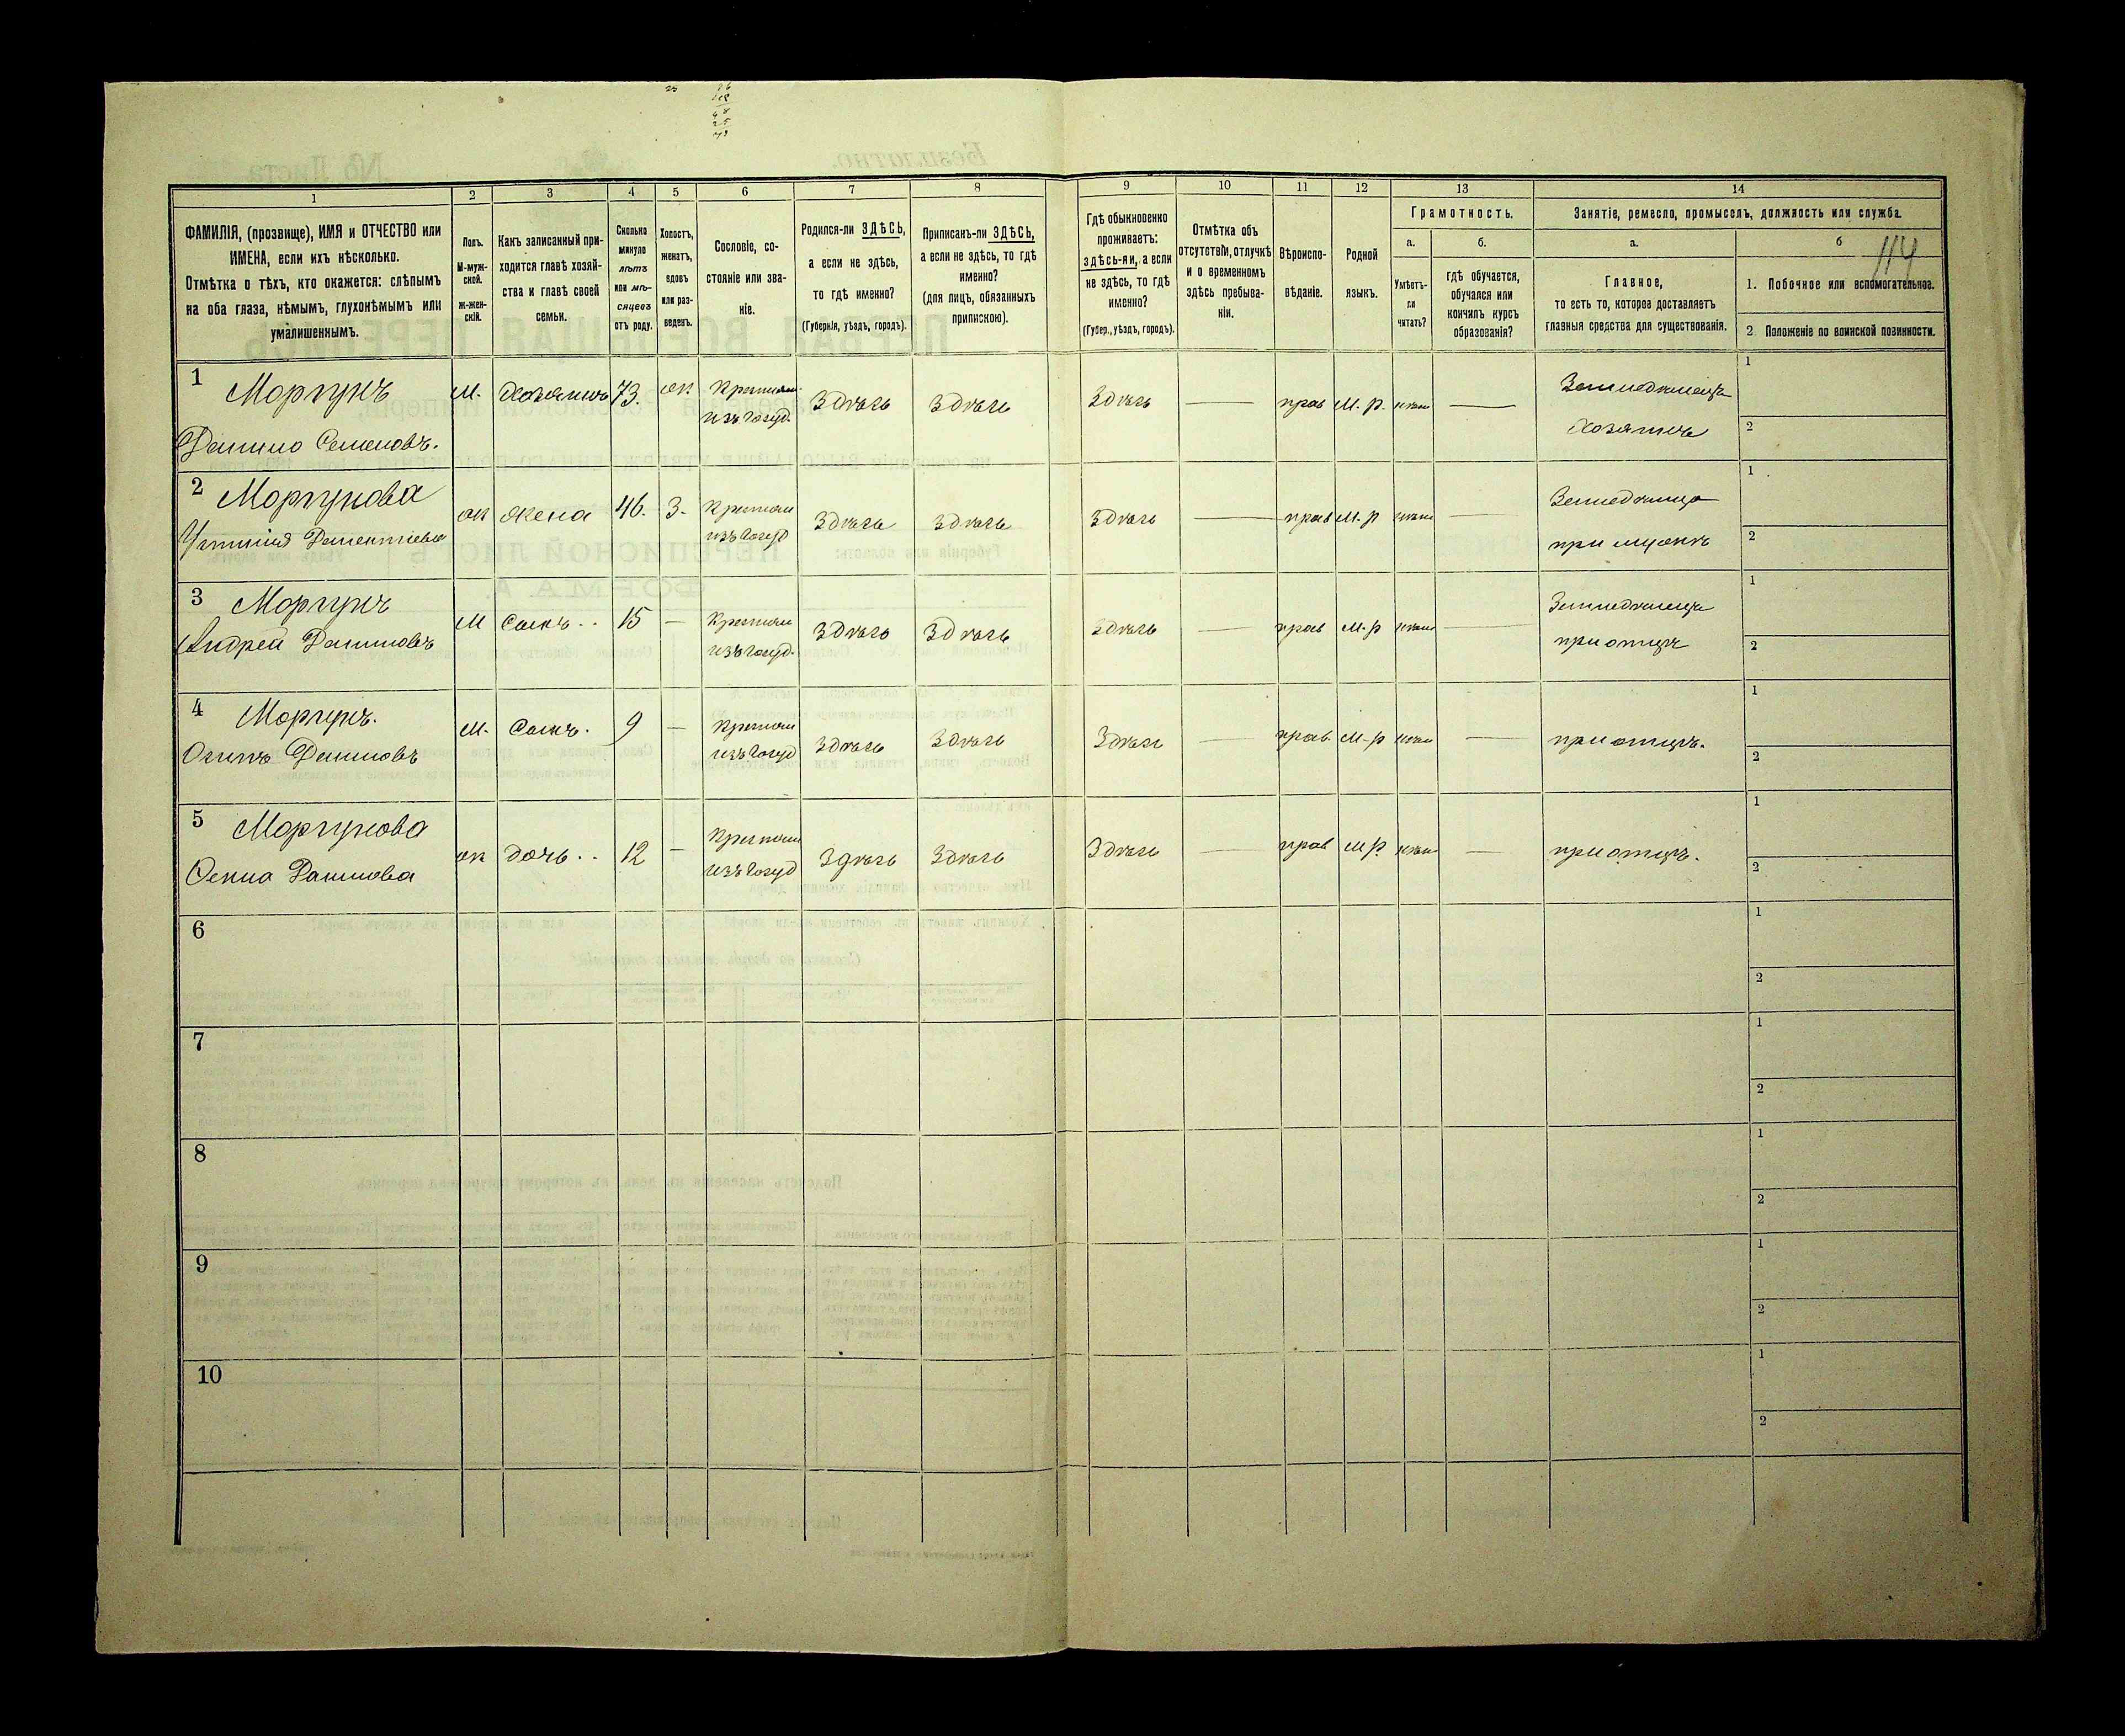 1 2 3 4 5 6 7 8 9 10 11 12 13 14
ФАМИЛІЯ, (прозвище), ИМЯ и ОТЧЕСТВО или ИМЕНА, если ихъ нѣсколько.
Отмѣтка о тѣхъ, кто окажется: слѣпымъ на оба глаза, нѣмымъ, глухонѣмымъ или умалишеннымъ.
Полъ. М-мужской. Ж-женскій.
Какъ записанный приходится главѣ хозяйства и главѣ своей семьи.
Сколько минуло лѣтъ или мѣсяцевъ отъ роду.
Холостъ, женатъ, вдовъ или разведенъ.
Сословіе, состояніе или званіе.
Родился-ли ЗДѢСЬ, а если не здѣсь, то гдѣ именно?
(Губернія, уѣздъ, городъ).
Приписанъ-ли ЗДѢСЬ, а если не здѣсь, то гдѣ именно?
(для лицъ, обязанныхъ припискою).
Гдѣ обыкновенно проживаетъ: здѣсь-ли, а если не здѣсь, то гдѣ именно?
(Губер., уѣздъ, городъ).
Отмѣтка объ отсутствіи, отлучкѣ и о временномъ здѣсь пребываніи.
Вѣроисповѣданіе.
Родной языкъ.
Грамотность.
а. Умѣетъ-ли читать?
б. гдѣ обучается, обучался или кончилъ курсъ образованія?
Занятіе, ремесло, промыселъ, должность или служба.
а. Главное, то есть то, которое доставляетъ главныя средства для существованія.
б 114
1. Побочное или вспомогательное.
2 Положеніе по воинской повинности.
1 Моргунъ М. Хозяинъ 73. ж. Крестьян Здѣсь Здѣсь Здѣсь — прав М. р. — Земледѣлецъ 1
Данило Семеновъ. изъ госуд. Хозяинъ 2
2 Моргунова ж жена 46. З. Крестьян Здѣсь Здѣсь Здѣсь — прав М. р — 1
изъ госуд при мужѣ 2
3 Моргунъ М Сынъ 15 — Крестьян Здѣсь Здѣсь Здѣсь — прав М. р — Земледѣлецъ 1
Андрей Даниловъ изъ госуд. при отцѣ 2
4 Моргунъ. М. Сынъ. 9 — Крестьян Здѣсь Здѣсь Здѣсь — прав. М. р — при отцѣ. 1
Осипъ Даниловъ изъ госуд 2
5 Моргунова ж дочь 12 — Крестьян Здѣсь Здѣсь Здѣсь — прав М р. — при отцѣ. 1
Данилова изъ госуд 2
6 1
2
7 1
2
8 1
2
9 1
2
10 1
2